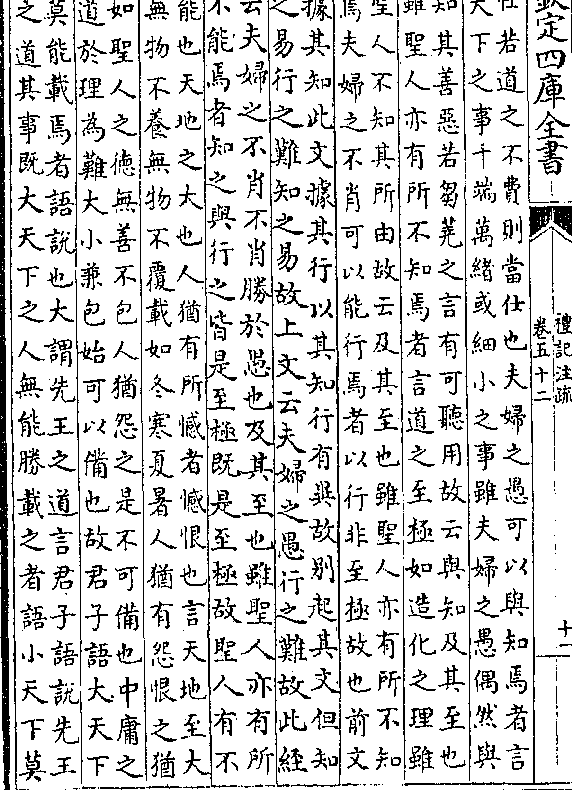 欽定四庫全書
禮記注疏
卷五十二
十一
仕若道之不費則當仕也夫婦之愚可以與知焉者言
天下之事千端萬緒或細小之事雖夫婦之愚偶然與
知其善惡若芻蕘之言有可聽用故云與知及其至也
雖聖人亦有所不知焉者言道之至極如造化之理雖
聖人不知其所由故云及其至也雖聖人亦有所不知
焉夫婦之不肖可以能行焉者以行非至極故也前文
據其知此文據其行以其知行有異故別起其文但知
之易行之難知之易故上文云夫婦之愚行之難故此經
云夫婦之不肖不肖勝於愚也及其至也雖聖人亦有所
不能焉者知之與行之皆是至極既是至極故聖人有不
能也天地之大也人猶有所憾者憾恨也言天地至大
無物不養無物不覆載如冬寒夏暑人猶有怨恨之猶
如聖人之徳無善不包人猶怨之是不可備也中庸之
道於理為難大小兼包始可以備也故君子語大天下
莫能載焉者語說也大謂先王之道言君子語說先王
之道其事既大天下之人無能勝載之者語小天下莫